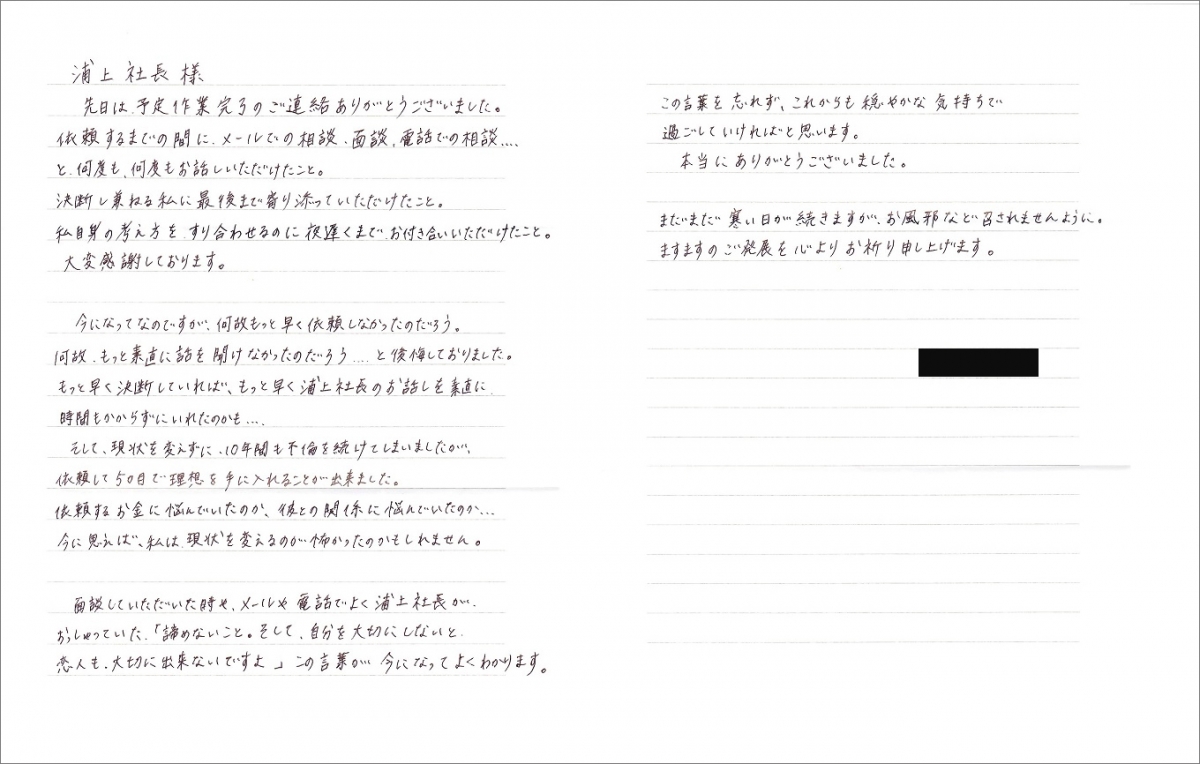 浦上社長様
先日は、予定作業完了のご連絡ありがとうございました。
依頼するまでの間に、メールでの相談、面談、電話での相談....
と、何度も、何度もお話しいただけたこと。
決断し兼ねる私に最後まで寄り添っていただけたこと。
私自身の考え方を、すり合わせるのに夜遅くまで、お付き合いいただけたこと。
大変感謝しております。
今になってなのですが、何故もっと早く依頼しなかったのだろう。
何故、もっと素直に話を聞けなかったのだろう....と後悔しておりました。
もっと早く決断していれば、もっと早く浦上社長のお話しを素直に、
時間もかからずにいれたのかも....
そして、現状を変えずに、10年間も不倫を続けてしまいましたが、
依頼して50日で理想を手に入れることが出来ました。
依頼するお金に悩んでいたのか、彼との関係に悩んでいたのか...
今に思えば、私は、現状を変えるのが怖かったのかもしれません。
面談していただいた時や、メールや電話でよく浦上社長が、
おしゃっていた、「諦めないこと。そして、自分を大切にしないと、
恋人も、大切に出来ないですよ」この言葉が今になってよくわかります。
この言葉を忘れず、これからも穏やかな気持ちで
過ごしていければと思います。
本当にありがとうございました。
まだまだ寒い日が続きますが、お風邪など召されませんように。
ますますのご発展を心よりお祈り申し上げます。